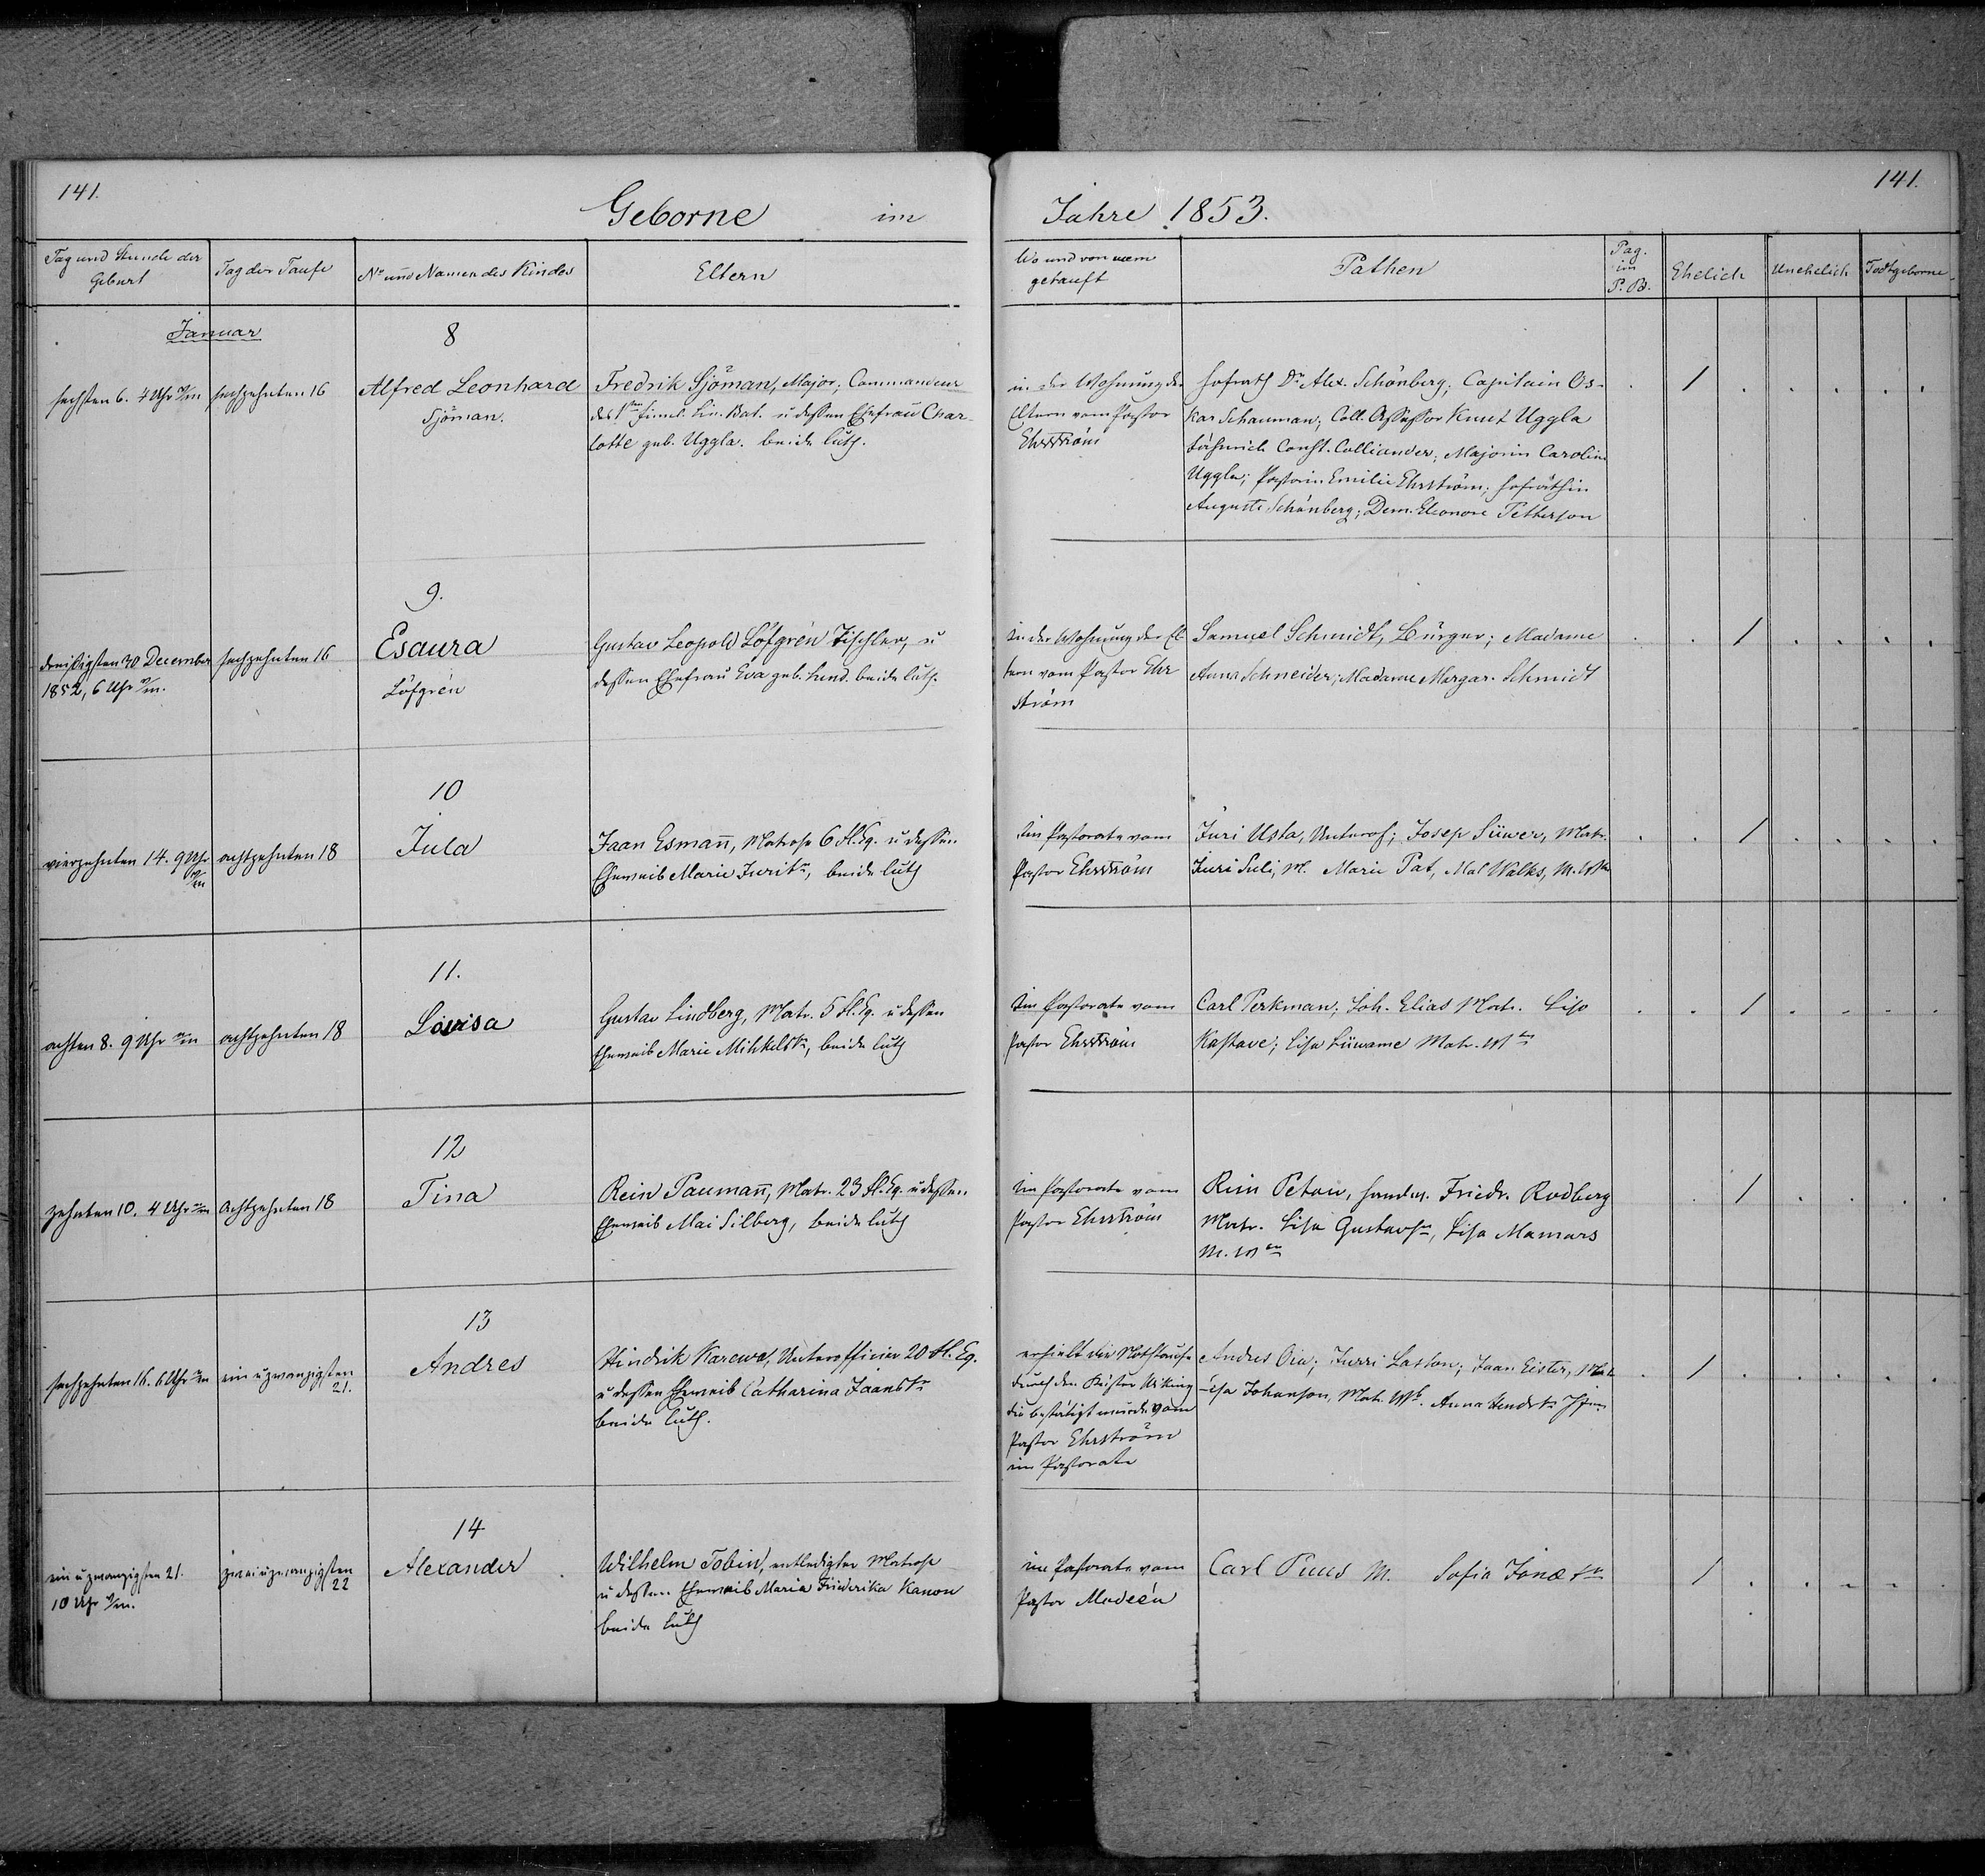 141.
Geborne im Jahre 1853.
141.
Tag und Stunde der Geburt
Tag der Taufe
No und Namen des Kindes
Eltern
Wo und von wem getauft
Pathen
Pag. im P. B.
Ehelich
Unehelich
Todtgeborne
Januar
8
sechsten 6. 4 Uhr
sechzehnten 16
Alfred Leonhard
Sjöman.
Fredrik Sjöman, Major, Commandeur
des 1sten finnl. Lin. Bat. u dessen Ehefrau Char-
lotte geb. Uggla. beide luth.
in der Wohnung der
Eltern vom Pastor
Ehrström
Hofrath Dr Alex. Schönberg; Capitain Os-
kar Schauman; Coll. Assessor Knut Uggla
Fähnrich Const. Colliander; Majorin Caroline
Uggla; Pastorin Emilie Ehrström; Hofräthin
Auguste Schönberg; Dem. Eleonore Petterson
1
9.
dreißigsten 30 December
1852, 6 Uhr
sechzehnten 16
Esaura
Löfgrén
Gustav Leopold Löfgrén Tischler, u
dessen Ehefrau Eva geb. Lund. beide luth.
in der Wohnung der El-
tern vom Pastor Ehr
ström
Samuel Schmidt, Bürger; Madame
Anna Schneider; Madame Margar. Schmidt
1
10
vierzehnten 14. 9 Uhr
achtzehnten 18
Jula
Jaan Esmañ, Matrose 6 Fl. Eq. u dessen
Eheweib Marie Jurit, beide luth
im Pastorate vom
Pastor Ehrström
Juri Usta, Unterof; Josep Siiwer, Matr.
Juri Suli, M. Marie Pat, Mal Walks, M.
1
11.
achten 8. 9 Uhr
achtzehnten 18
Lowisa
Gustav Lindberg, Matr. 5 Fl. Eq. u dessen
Eheweib Marie Mihkelst, beide luth
im Pastorate vom
Pastor Ehrström
Carl Perkman; Joh. Elias Matr. Liso
Kastave; Lisa Liiwame Matr.
1
12
zehnten 10. 4 Uhr
achtzehnten 18
Tina
Rein Paumañ, Matr. 23 Fl. Eq. u dessen
Eheweib Mai Silberg, beide luth
im Pastorate vom
Pastor Ehrström
Rein Petow, Friedr. Rodberg
Matr. Lisa Gustavs, Lisa Mamars
1
13
sechzehnten 16. 6 Uhr
ein u zwanzigsten
21.
Andres
Hindrik Karewa, Unterofficier 20 Fl. Eq.
u dessen Eheweib Catharina Jaanst
beide luth.
erhielt die Nothtaufe
durch den Küster Wiking
die bestätigt wurde vom
Pastor Ehrström
im Pastorate
Andres Oia; Jurri Laston; Jaan Eister, Matr.
Johanson, Matr. Anna
1
14
ein u zwanzigsten 21.
10 Uhr
zwei u zwanzigsten
22
Alexander
Wilhelm Tobin, entledigter Matrose
u dessen Eheweib Maria Friederika Kanon
beide luth
im Pastorate vom
Pastor Modeén
Carl Puus M. Sofia
1